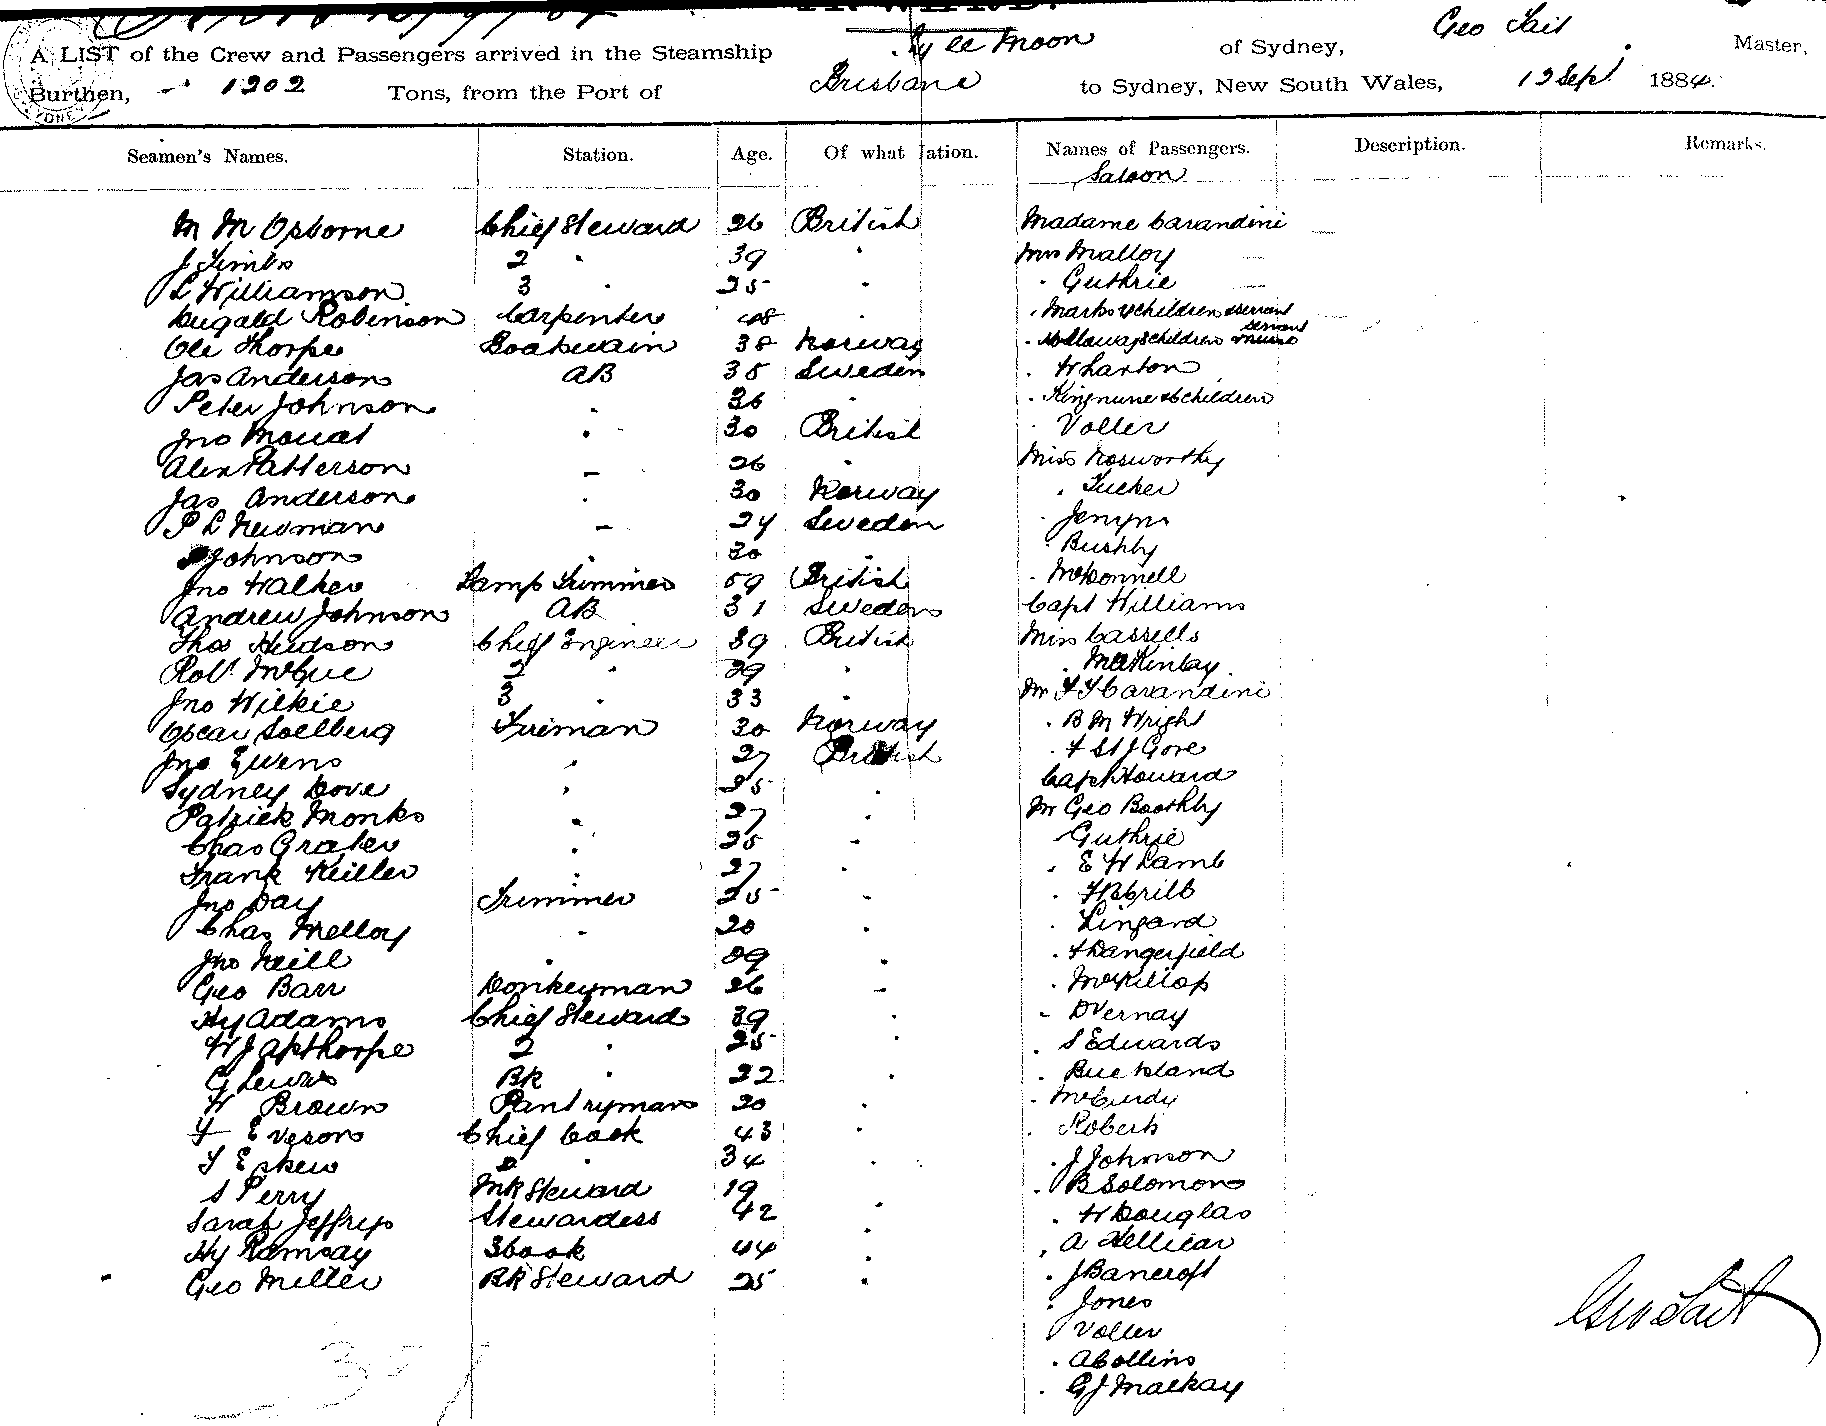 A LIST of the Crew and Passengers arrived in the Steamship Ly ee Moon of Sydney, Geo Tait Master,
Burthen, 1202 Tons, from the Port of Brisbane to Sydney, New South Wales, 12 Sep 1884.
Seamen's Names. Station. Age. Of what Nation. Names of Passengers. Description. Remarks.
Saloon
M M Osborne Chief Steward 26 British Madame Carandini
J Timbs 2 " 39 " Mrs Malloy
L Williamson 3 " 25 " " Guthrie
Dugald Robinson Carpenter 48 " " Marks & children & servant
Ole Thorpe Boatswain 38 Norway " Holloway & children servant & nurse
Jas Anderson AB 35 Sweden " Wharton
Peter Johnson " 36 " " King nurse & children
Jno Mouat " 30 British " Voller
Alex Patterson " 26 " Miss Nosworthy
Jas Anderson " 30 Norway " Tucker
P L Newman " 24 Sweden " Jenyns
Johnson " 30 " " Bushby
Jno Walker Lamp Trimmer 59 British " McDonnell
Andrew Johnson AB 31 Sweden Capt Williams
Thos Hudson Chief Engineer 39 British Miss Cassells
Robt McGue 2 " 29 " " McKinlay
Jno Wilkie 3 " 33 " Mr F T Carandini
Oscar Soelberg Fireman 30 Norway " B M Wright
Jno Ewens " 27 British " F St J Gore
Sydney Dove " 25 " Capt Howard
Patrick Monks " 27 " Mr Geo Boothby
Chas Grater " 25 " Guthrie
Frank Keiller " 27 " " E W Lamb
Jno Day Trimmer 25 " "
Chas Melloy " 20 " " Lingard
Jno Neill " 59 " " F Dangerfield
Geo Barr Donkeyman 26 " " McKillop
Hy Adams Chief Steward 39 " " D Vernay
W J Apthorpe 2 " 25 " " S Edwards
G Lewis BR " 22 " " Buckland
W Brown Pantryman 20 " " McCurdy
F Evesons Chief Cook 43 " " Roberts
T Eskew 2 " 34 " " J Johnson
S Perry MR Steward 19 " " B Solomons
Sarah Jeffreys Stewardess 42 " " W Douglas
Hy Ramsay 3 Cook 44 " " A Hellicar
Geo Miller BR Steward 25 " " J Bancroft
" Jones
" Voller
" A Collins
" G J Mackay
Geo Tait